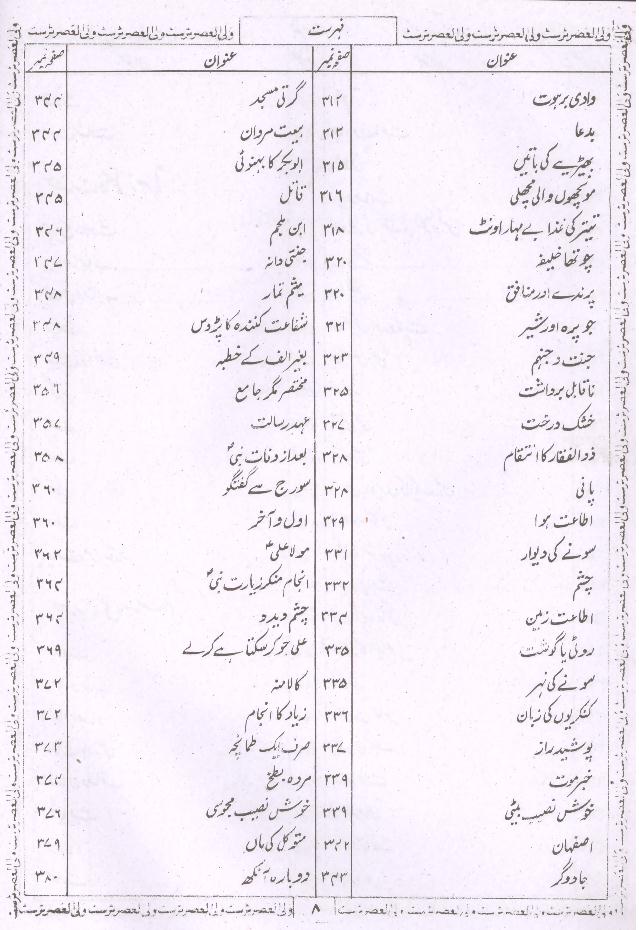 ولی العصر ٹرسٹ ولی العصر ٹرسٹ ولی العصر ٹرسٹ فہرست ولی العصر ٹرسٹ ولی العصر ٹرسٹ ولی العصر ٹرسٹ
عنوان صفحہ نمبر عنوان صفحہ نمبر
وادی برہوت ۳۱۲ گرتی مسجد ۳۴۴
بدعا ۳۱۳ بیعت مروان ۳۴۴
بھیڑیے کی باتیں ۳۱۵ ابوبکر کا بہنوئی ۳۴۵
مونچھوں والی مچھلی ۳۱۶ قاتل ۳۴۵
تیتر کی ندا بے مہار اونٹ ۳۱۸ ابن ملجم ۳۴۶
چوتھا خلیفہ ۳۲۰ جنتی دانہ ۳۴۷
پرندے اور منافق ۳۲۰ میثم تمار ۳۴۸
جویرہ اور شیر ۳۲۱ شفاعت کنندہ کا پڑوس ۳۴۸
جنت و جہنم ۳۲۳ بغیر الف کے خطبہ ۳۴۹
ناقابل برداشت ۳۲۵ مختصر مگر جامع ۳۵۶
خشک درخت ۳۲۷ عہد رسالت ۳۵۷
ذوالفقار کا انتقام ۳۲۸ بعد از وفات نبیؐ ۳۵۸
پانی ۳۲۸ سورج سے گفتگو ۳۶۰
اطاعت ہوا ۳۲۹ اول و آخر ۳۶۰
سونے کی دیوار ۳۳۱ مولا علیؑ ۳۶۲
چشم ۳۳۲ انجام منکر زیارت نبیؐ ۳۶۴
اطاعت زمین ۳۳۴ چشم دید ۳۶۴
روٹی یا گوشت ۳۳۵ علی جو کر سکتا ہے کرلے ۳۶۹
سونے کی نہر ۳۳۵ ۳۷۲
کنکریوں کی زبان ۳۳۶ زیاد کا انجام ۳۷۲
پوشیدہ راز ۳۳۷ صرف ایک طمانچہ ۳۷۳
خبر موت ۳۳۹ مردہ بطخ ۳۷۴
خوش نصیب بیٹی ۳۳۹ خوش نصیب مجوسی ۳۷۶
اصفہان ۳۴۲ متوکل کی ماں ۳۷۹
جادوگر ۳۴۳ دوبارہ آنکھ ۳۸۰
ولی العصر ٹرسٹ ولی العصر ٹرسٹ ولی العصر ٹرسٹ ۸ ولی العصر ٹرسٹ ولی العصر ٹرسٹ ولی العصر ٹرسٹ